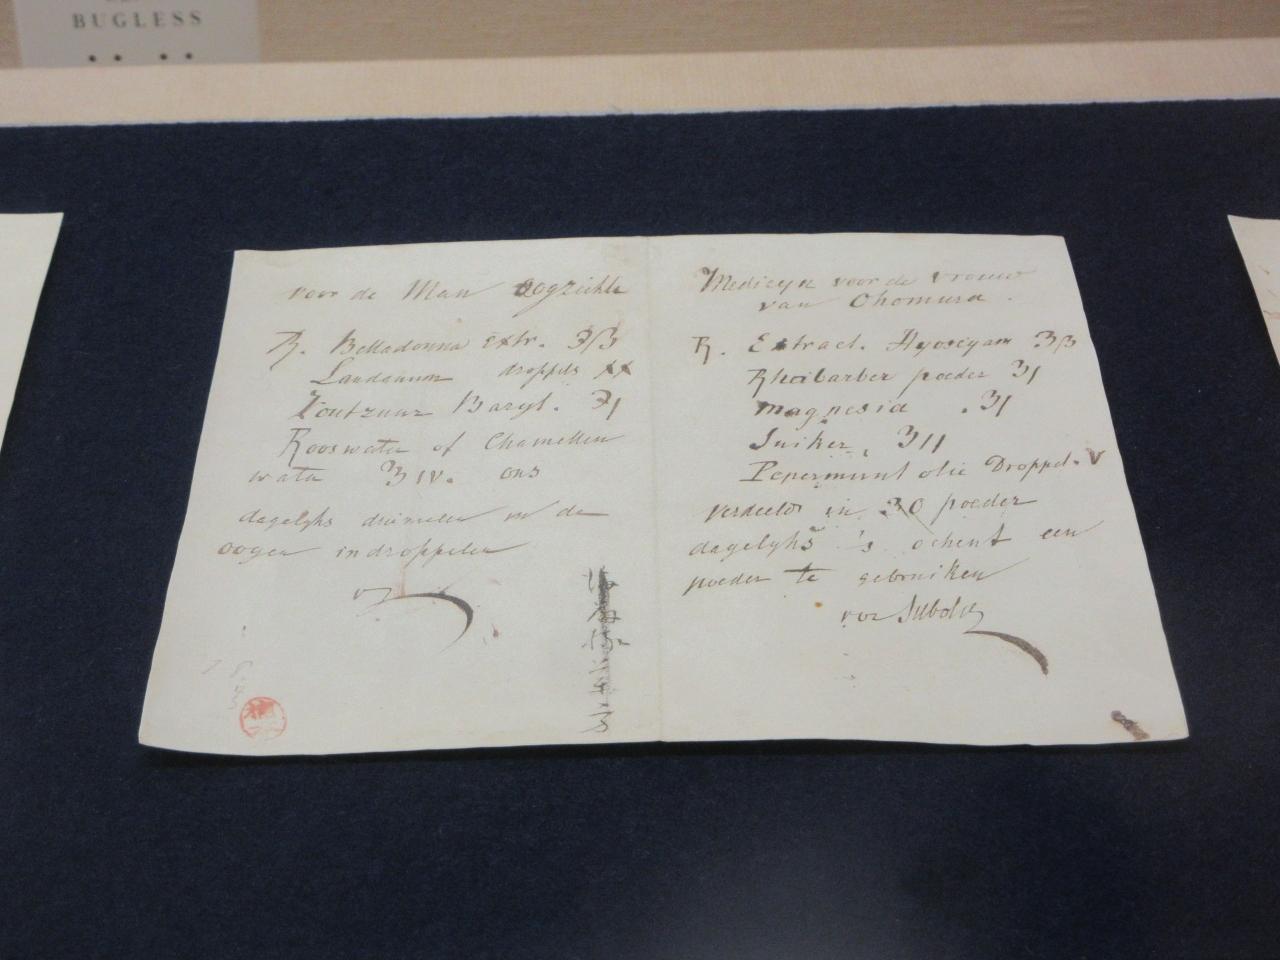 BUGLESS
voor de Man oogziekte
R. Belladonna Extr. ʒβ
Laudanum droppels xx
Zoutzuur Baryt. ʒj
Rooswater of Chamillen
water ℥ iv. ons
dagelyks driemalen in de
oogen indroppelen
v
Medicyn voor de vrouw
van Chomura.
R. Extract. Hyosciam ʒβ
Rheibarber poeder ʒj
magnesia . ʒj
Suiker ʒjj
Pepermunt olie Droppel. v
verdeeld in 30 poeder
dagelyks 's ochent een
poeder te gebruiken
von Siebold